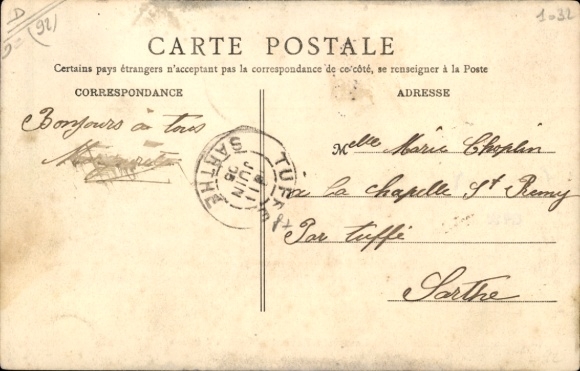 D
(92)
1032
CARTE POSTALE
Certains pays étrangers n'acceptant pas la correspondance de ce côté, se renseigner à la Poste
CORRESPONDANCE
ADRESSE
Bonjours à tous
TUFFÉ
11
JUIN
SARTHE
Melle Marie Choplin
à La chapelle St Remy
Par tuffé
Sarthe